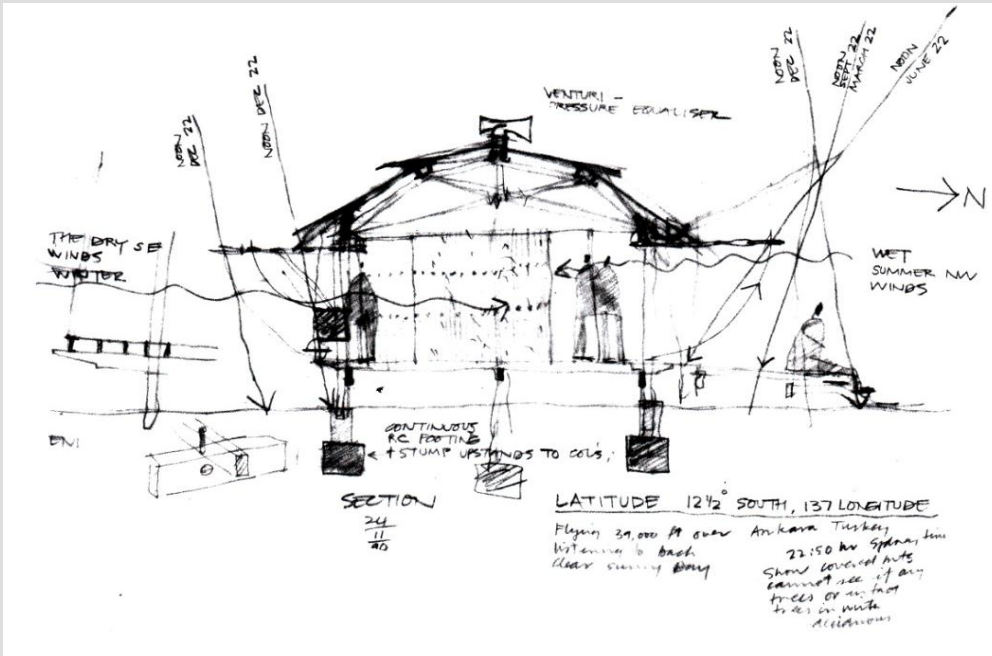 NOON
DEC 22
NOON DEC 22
VENTURI -
PRESSURE EQUALISER
NOON
DEC 22
NOON
SEPT 22
MARCH 22
NOON
JUNE 22
N
THE DRY SE
WINDS
WINTER
WET
SUMMER NW
WINDS
CONTINUOUS
RC FOOTING
+ STUMP UPSTANDS TO COLS,
SECTION
24
11
90
LATITUDE 12½° SOUTH, 137 LONGITUDE
Flying 39,000 ft over Ankara Turkey
listening to bach
Clear sunny Day
22:50 hr Sydney time
Snow covered
cannot see if any
trees or in fact
trees in
deciduous